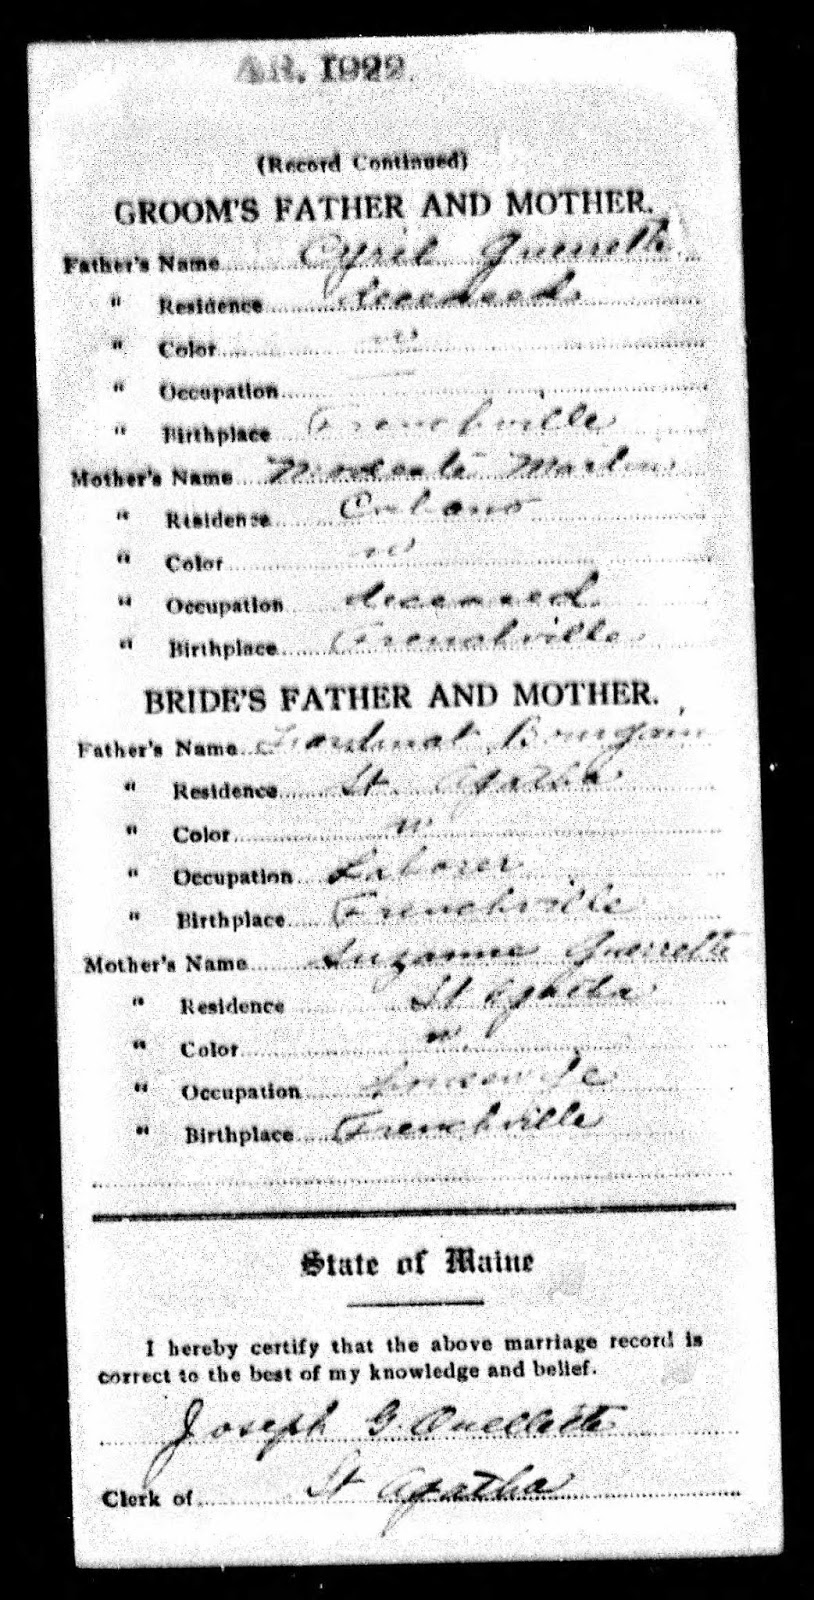 AR. 1922.
(Record Continued)
GROOM'S FATHER AND MOTHER.
Father's Name Cyril Guerrette
" Residence deceased
" Color w
" Occupation —
" Birthplace Frenchville
Mother's Name Modeste Martin
" Residence Cabano
" Color w
" Occupation deceased
" Birthplace Frenchville
BRIDE'S FATHER AND MOTHER.
Father's Name Bourgoin
" Residence St Agatha
" Color w
" Occupation Laborer
" Birthplace Frenchville
Mother's Name Suzanne Guerrette
" Residence St Agatha
" Color w
" Occupation housewife
" Birthplace Frenchville
State of Maine
I hereby certify that the above marriage record is
correct to the best of my knowledge and belief.
Joseph G. Ouellette
Clerk of St Agatha